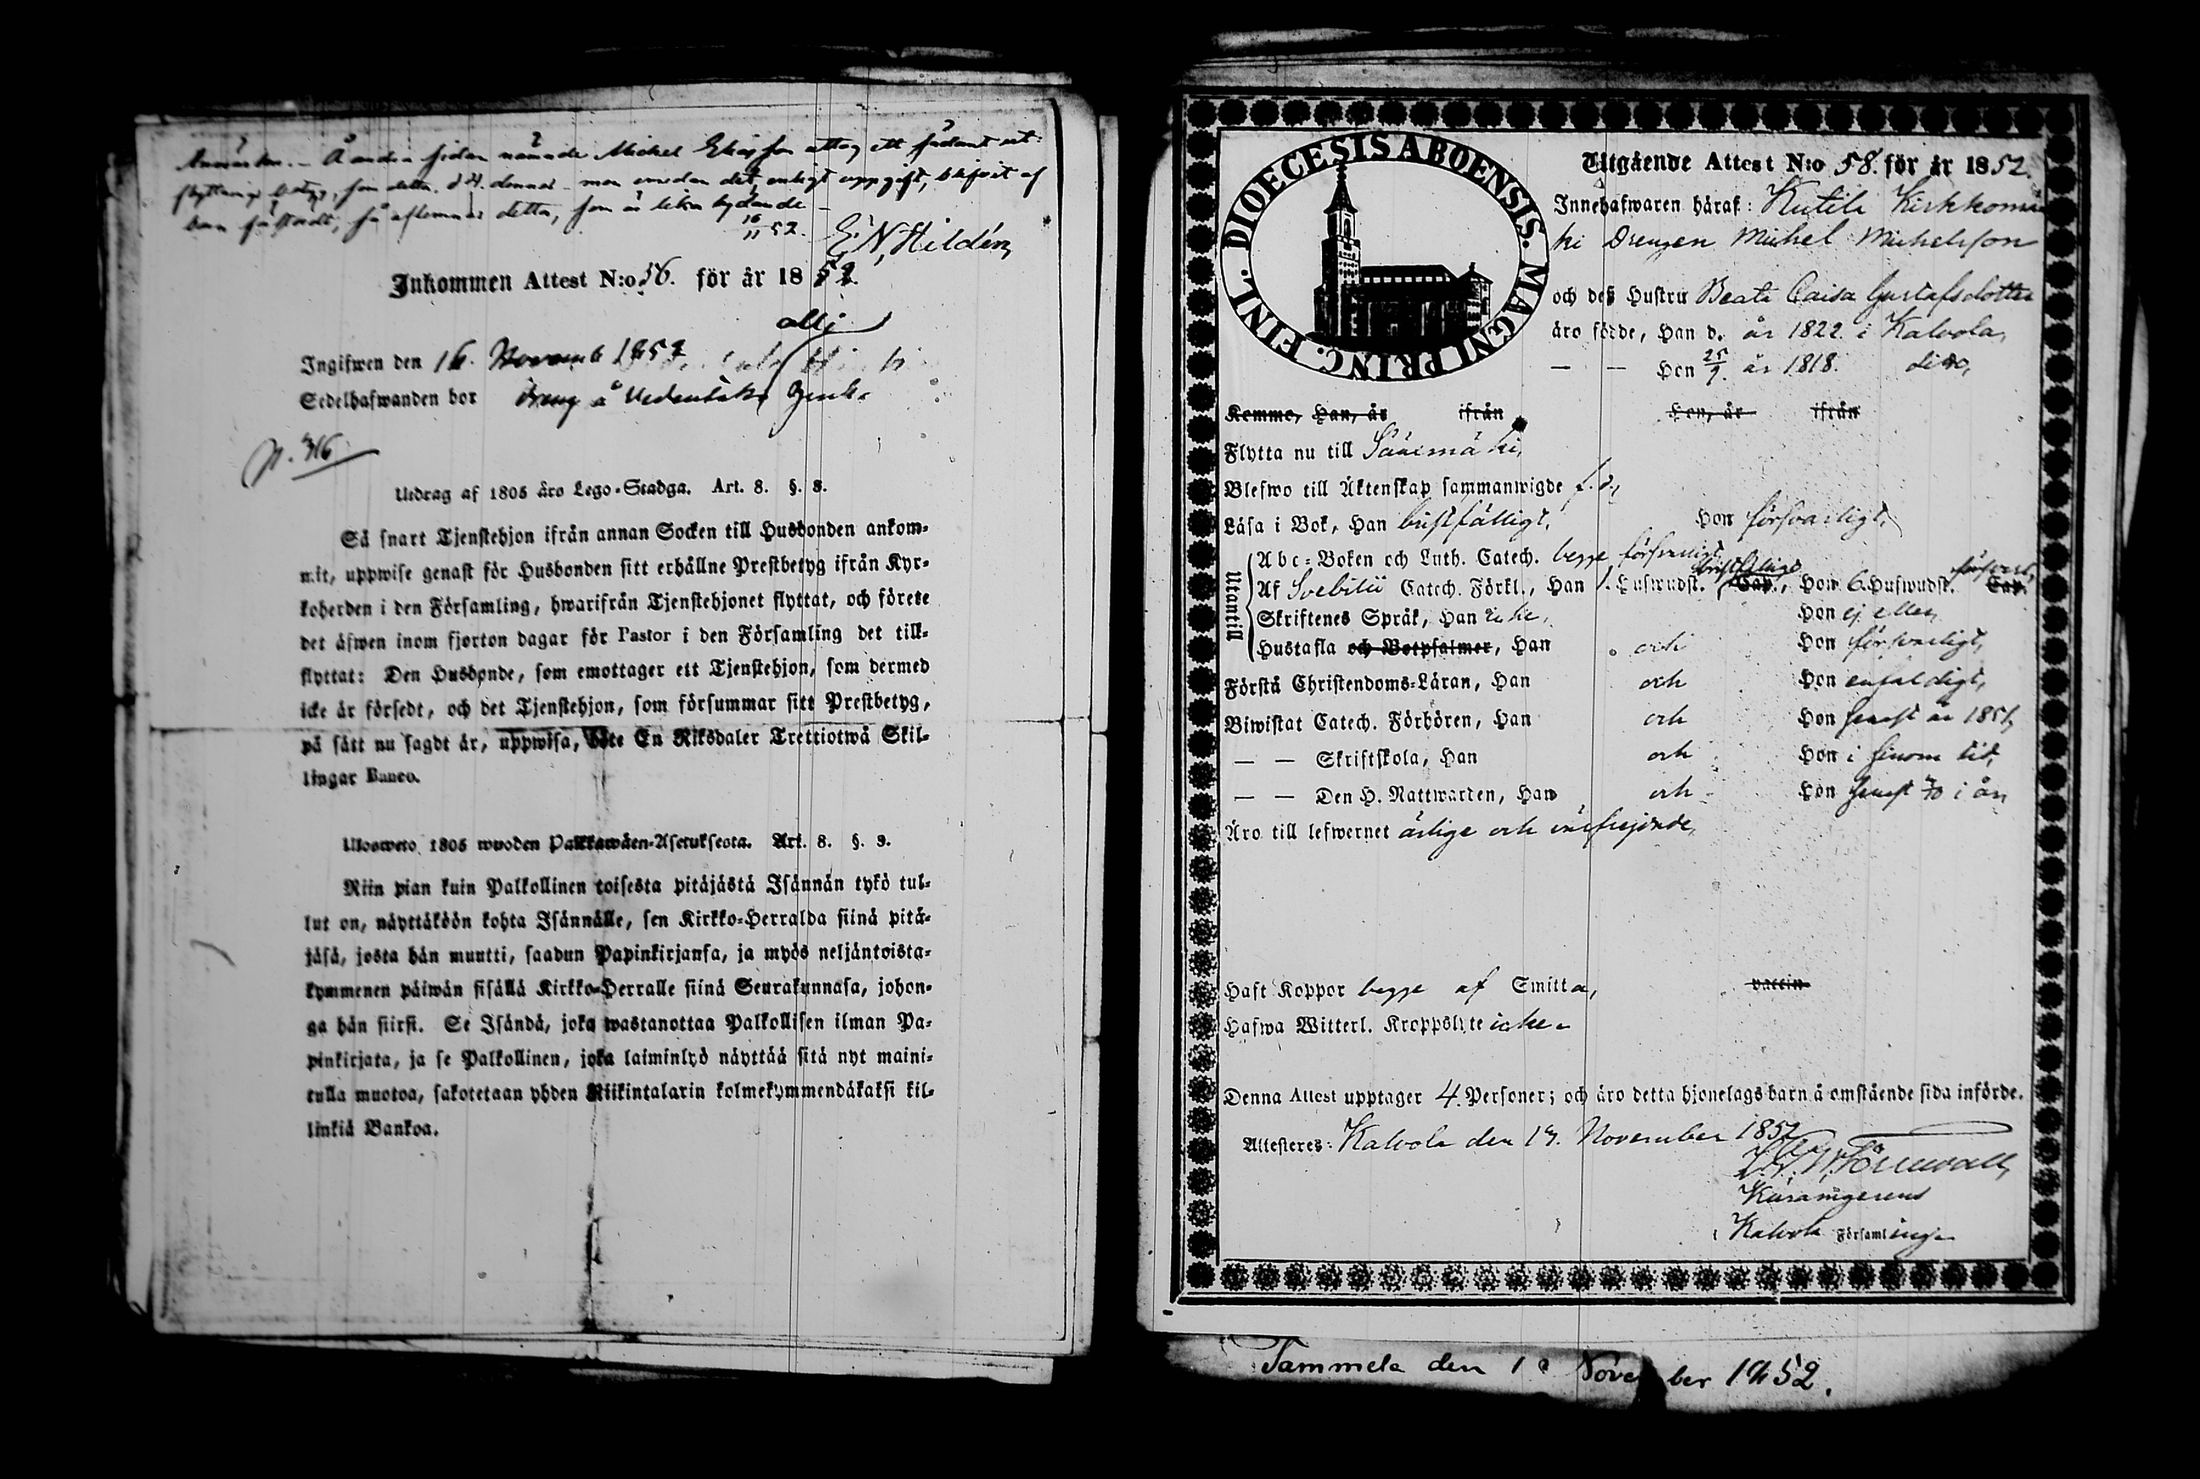 Anmärkn. – Å andra sidan nämnde Michel Eliasson uttog ett sådant ut-
flyttnings betyg, som detta, d 4 dennes – men emedan det, enligt uppgift, blifvit af
han förstördt, så aflemnas detta, som är lika lydande –
16/11 52. E. N. Hildén
Inkommen Attest N:o 56. för år 1852.
Ingifwen den 16. Novemb 1852
Sedelhafwanden bor dreng å
N. 316
Utdrag af 1805 års Lego-Stadga. Art. 8. §. 3.
Så snart Tjenstehjon ifrån annan Socken till Husbonden ankom-
mit, uppwise genast för Husbonden sitt erhållne Prestbetyg ifrån Kyr-
koherden i den Församling, hwarifrån Tjenstehjonet flyttat, och förete
det äfwen inom fjorton dagar för Pastor i den Församling det till-
flyttat: Den Husbonde, som emottager ett Tjenstehjon, som dermed
icke är försedt, och det Tjenstehjon, som försummar sitt Prestbetyg,
på sätt nu sagdt är, uppwisa, böte En Riksdaler Trettiotwå Skil-
lingar Banco.
Ulosweto 1805 wuoden Palkkawäen-Asetuksesta. Art. 8. §. 3.
Niin pian kuin Palkollinen toisesta pitäjästä Isännän tykö tul-
lut on, näyttäköön kohta Isännälle, sen Kirkko-Herralda siinä pitä-
jäsä, josta hän muutti, saadun Papinkirjansa, ja myös neljäntoista-
kymmenen päiwän sisällä Kirkko-Herralle siinä Seurakunnasa, johon-
ga hän siirsi. Se Isändä, joka wastanottaa Palkollisen ilman Pa-
pinkirjata, ja se Palkollinen, joka laiminlyö näyttää sitä nyt maini-
tulla muotoa, sakotetaan yhden Riikintalarin kolmekymmendäkaksi kil-
linkiä Bankoa.
FINL. DIOECESIS ABOENSIS. MAGNI PRINC.
Utgående Attest N:o 58. för år 1852.
Innehafwaren häraf: Kutila Kirkkomä
ki Drengen Michel Michelsson
och deß Hustru Beata Caisa Gustafsdotter
äro födde, Han d. år 1822 i Kalvola,
— — Hon 25/9. år 1818. dito,
Komme, Han, år ifrån Hon, år ifrån
Flytta nu till Sääxmäki,
Blefwo till Äktenskap sammanwigde f. d.,
Läsa i Bok, Han bristfälligt, Hon försvarligt,
Utantill
Abc-Boken och Luth. Catech. begge försvarligt
Af Svebilii Catech. Förkl., Han 1. Hufwudst. bristfälligt Cap., Hon 6. Hufwudst. försvarl. Cap.
Skriftenes Språk, Han icke, Hon ej eller,
Hustafla och Botpsalmer, Han och Hon försvarligt,
Förstå Christendoms-Läran, Han och Hon enfaldigt,
Biwistat Catech. Förhören, Han och Hon senast år 1851,
— — Skriftskola, Han och Hon i sinom tid,
— — Den H. Nattwarden, Han och Hon senast i år,
Äro till lefwernet ärlige och välfrejdade,
Haft Koppor begge af Smitta, vaccin
Hafwa Witterl. Kroppslyte icke.
Denna Attest upptager 4. Personer; och äro detta hjonelags barn å omstående sida införde.
Attesteres: Kalvola den 14. November 1852
Kalvola Församlings
Tammela den November 1852.